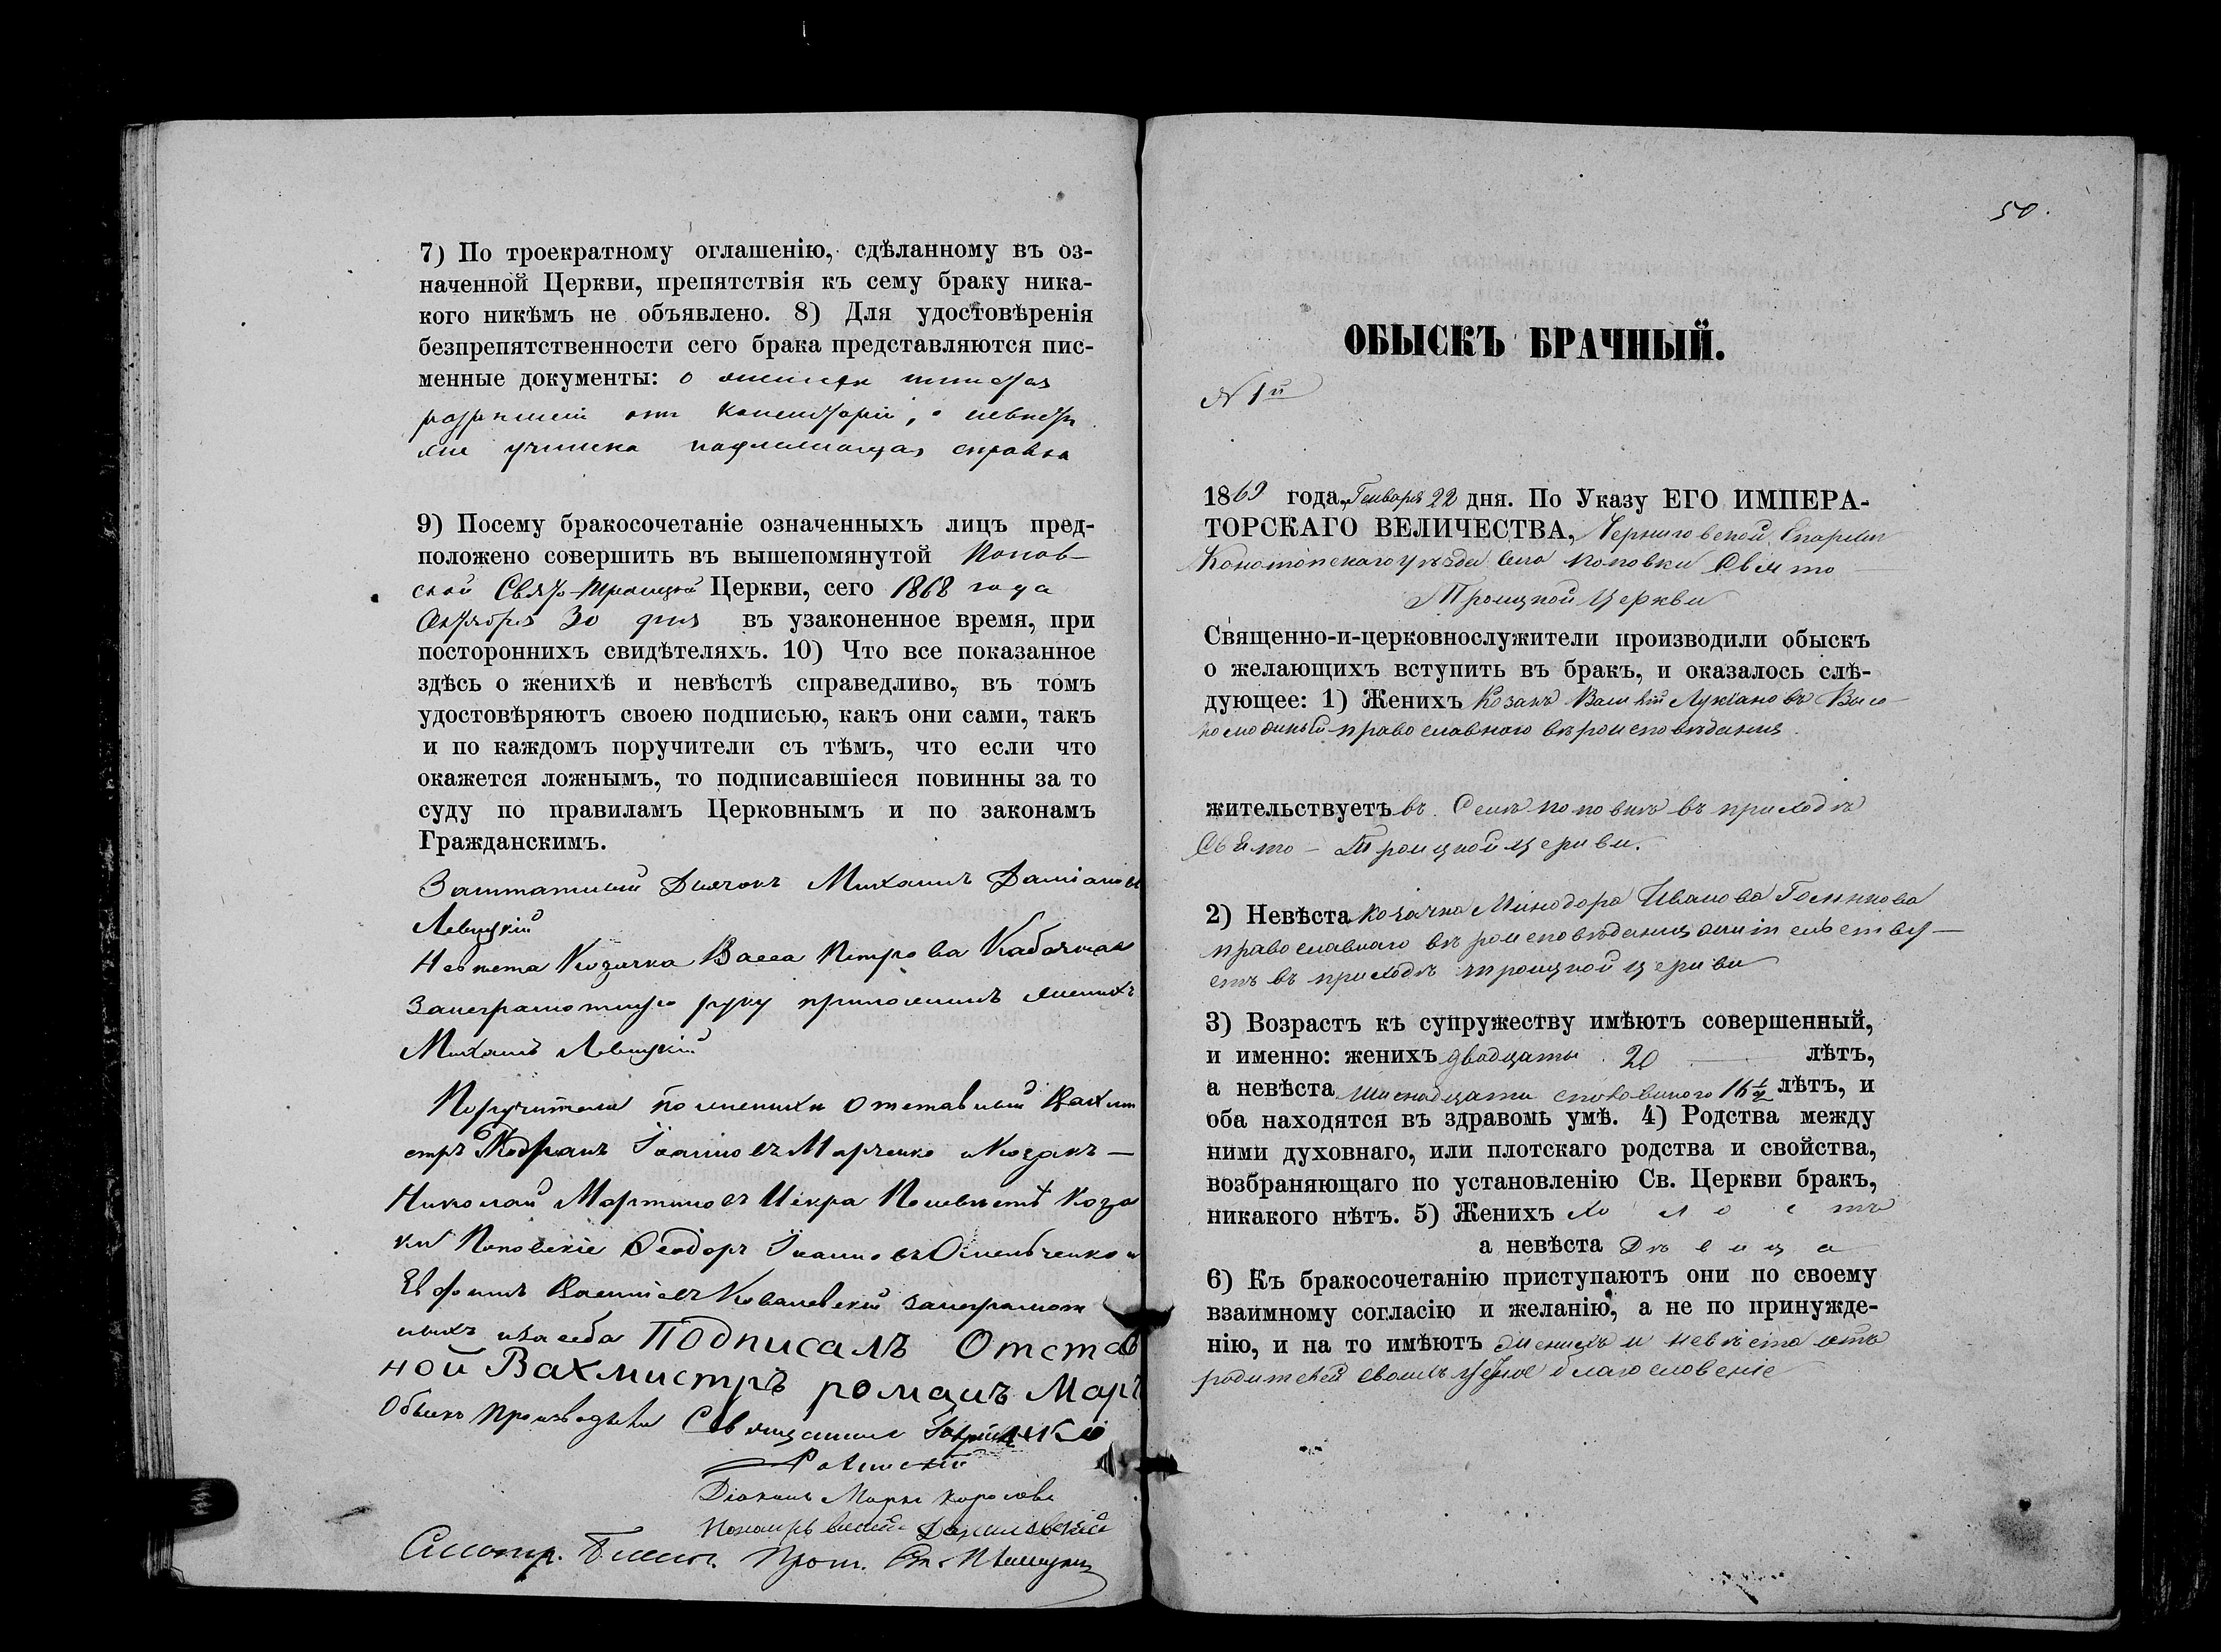 7) По троекратному оглашенію, сдѣланному въ оз-
наченной Церкви, препятствія къ сему браку ника-
кого никѣмъ не объявлено. 8) Для удостовѣренія
безпрепятственности сего брака представляются пис-
менные документы: о женихѣ
отъ Консисторіи, о невѣстѣ
учинена надлежащая справка
9) Посему бракосочетаніе означенныхъ лицъ пред-
положено совершить въ вышепомянутой Попов-
ской Свято-Троицкой Церкви, сего 1868 года
Октября 30 дня въ узаконенное время, при
постороннихъ свидѣтеляхъ. 10) Что все показанное
здѣсь о женихѣ и невѣстѣ справедливо, въ томъ
удостовѣряютъ своею подписью, какъ они сами, такъ
и по каждомъ поручители съ тѣмъ, что если что
окажется ложнымъ, то подписавшіеся повинны за то
суду по правиламъ Церковнымъ и по законамъ
Гражданскимъ.
Заштатный Дьячокъ Михаилъ Даміановъ
Левицкій
Невѣста Козачка Васса Петрова
занеграмотную руку приложилъ женихъ
Михаилъ Левицкій
Поручители по женихѣ Отставный Вахми
стръ Романъ Іоанновъ Марченко и Козакъ —
Николай Мартиновъ Искра По невѣстѣ Коза
ки Поповскіе Ѳеодоръ Іоанновъ Омельченко и
Евфимъ Василіевъ Ковалевскій занеграмот
ныхъ и за себа Подписалъ Отстав
ной Вахмистръ романъ Марч
енко
Обыскъ Производили Священникъ
Діаконъ Маркъ
Пономарь
50.
ОБЫСКЪ БРАЧНЫЙ.
N 1й
1869 года, Генваря 22 дня. По Указу ЕГО ИМПЕРА-
ТОРСКАГО ВЕЛИЧЕСТВА, Черниговской Епархіи
Конотопскаго уѣзда села Поповки Свято
Троицкой Церкви
Священно-и-церковнослужители производили обыскъ
о желающихъ вступить въ бракъ, и оказалось слѣ-
дующее: 1) Женихъ Козакъ Лукіановъ
православного вѣроисповѣданія
жительствуетъ въ Селѣ Поповкѣ въ приходѣ
Свято - Троицкой церкви.
2) Невѣста козачка Минодора Иванова
православнаго вѣроисповѣданія жительству —
етъ въ приходѣ троицкой церкви
3) Возрастъ къ супружеству имѣютъ совершенный,
и именно: женихъ двадцать 20 лѣтъ,
а невѣста шеснадцати споловиною 16 ½ лѣтъ, и
оба находятся въ здравомъ умѣ. 4) Родства между
ними духовнаго, или плотскаго родства и свойства,
возбраняющаго по установленію Св. Церкви бракъ,
никакого нѣтъ. 5) Женихъ Холостъ
а невѣста Дѣвица
6) Къ бракосочетанію приступаютъ они по своему
взаимному согласію и желанію, а не по принужде-
нію, и на то имѣютъ женихъ и невѣста отъ
родителей своихъ благословеніе